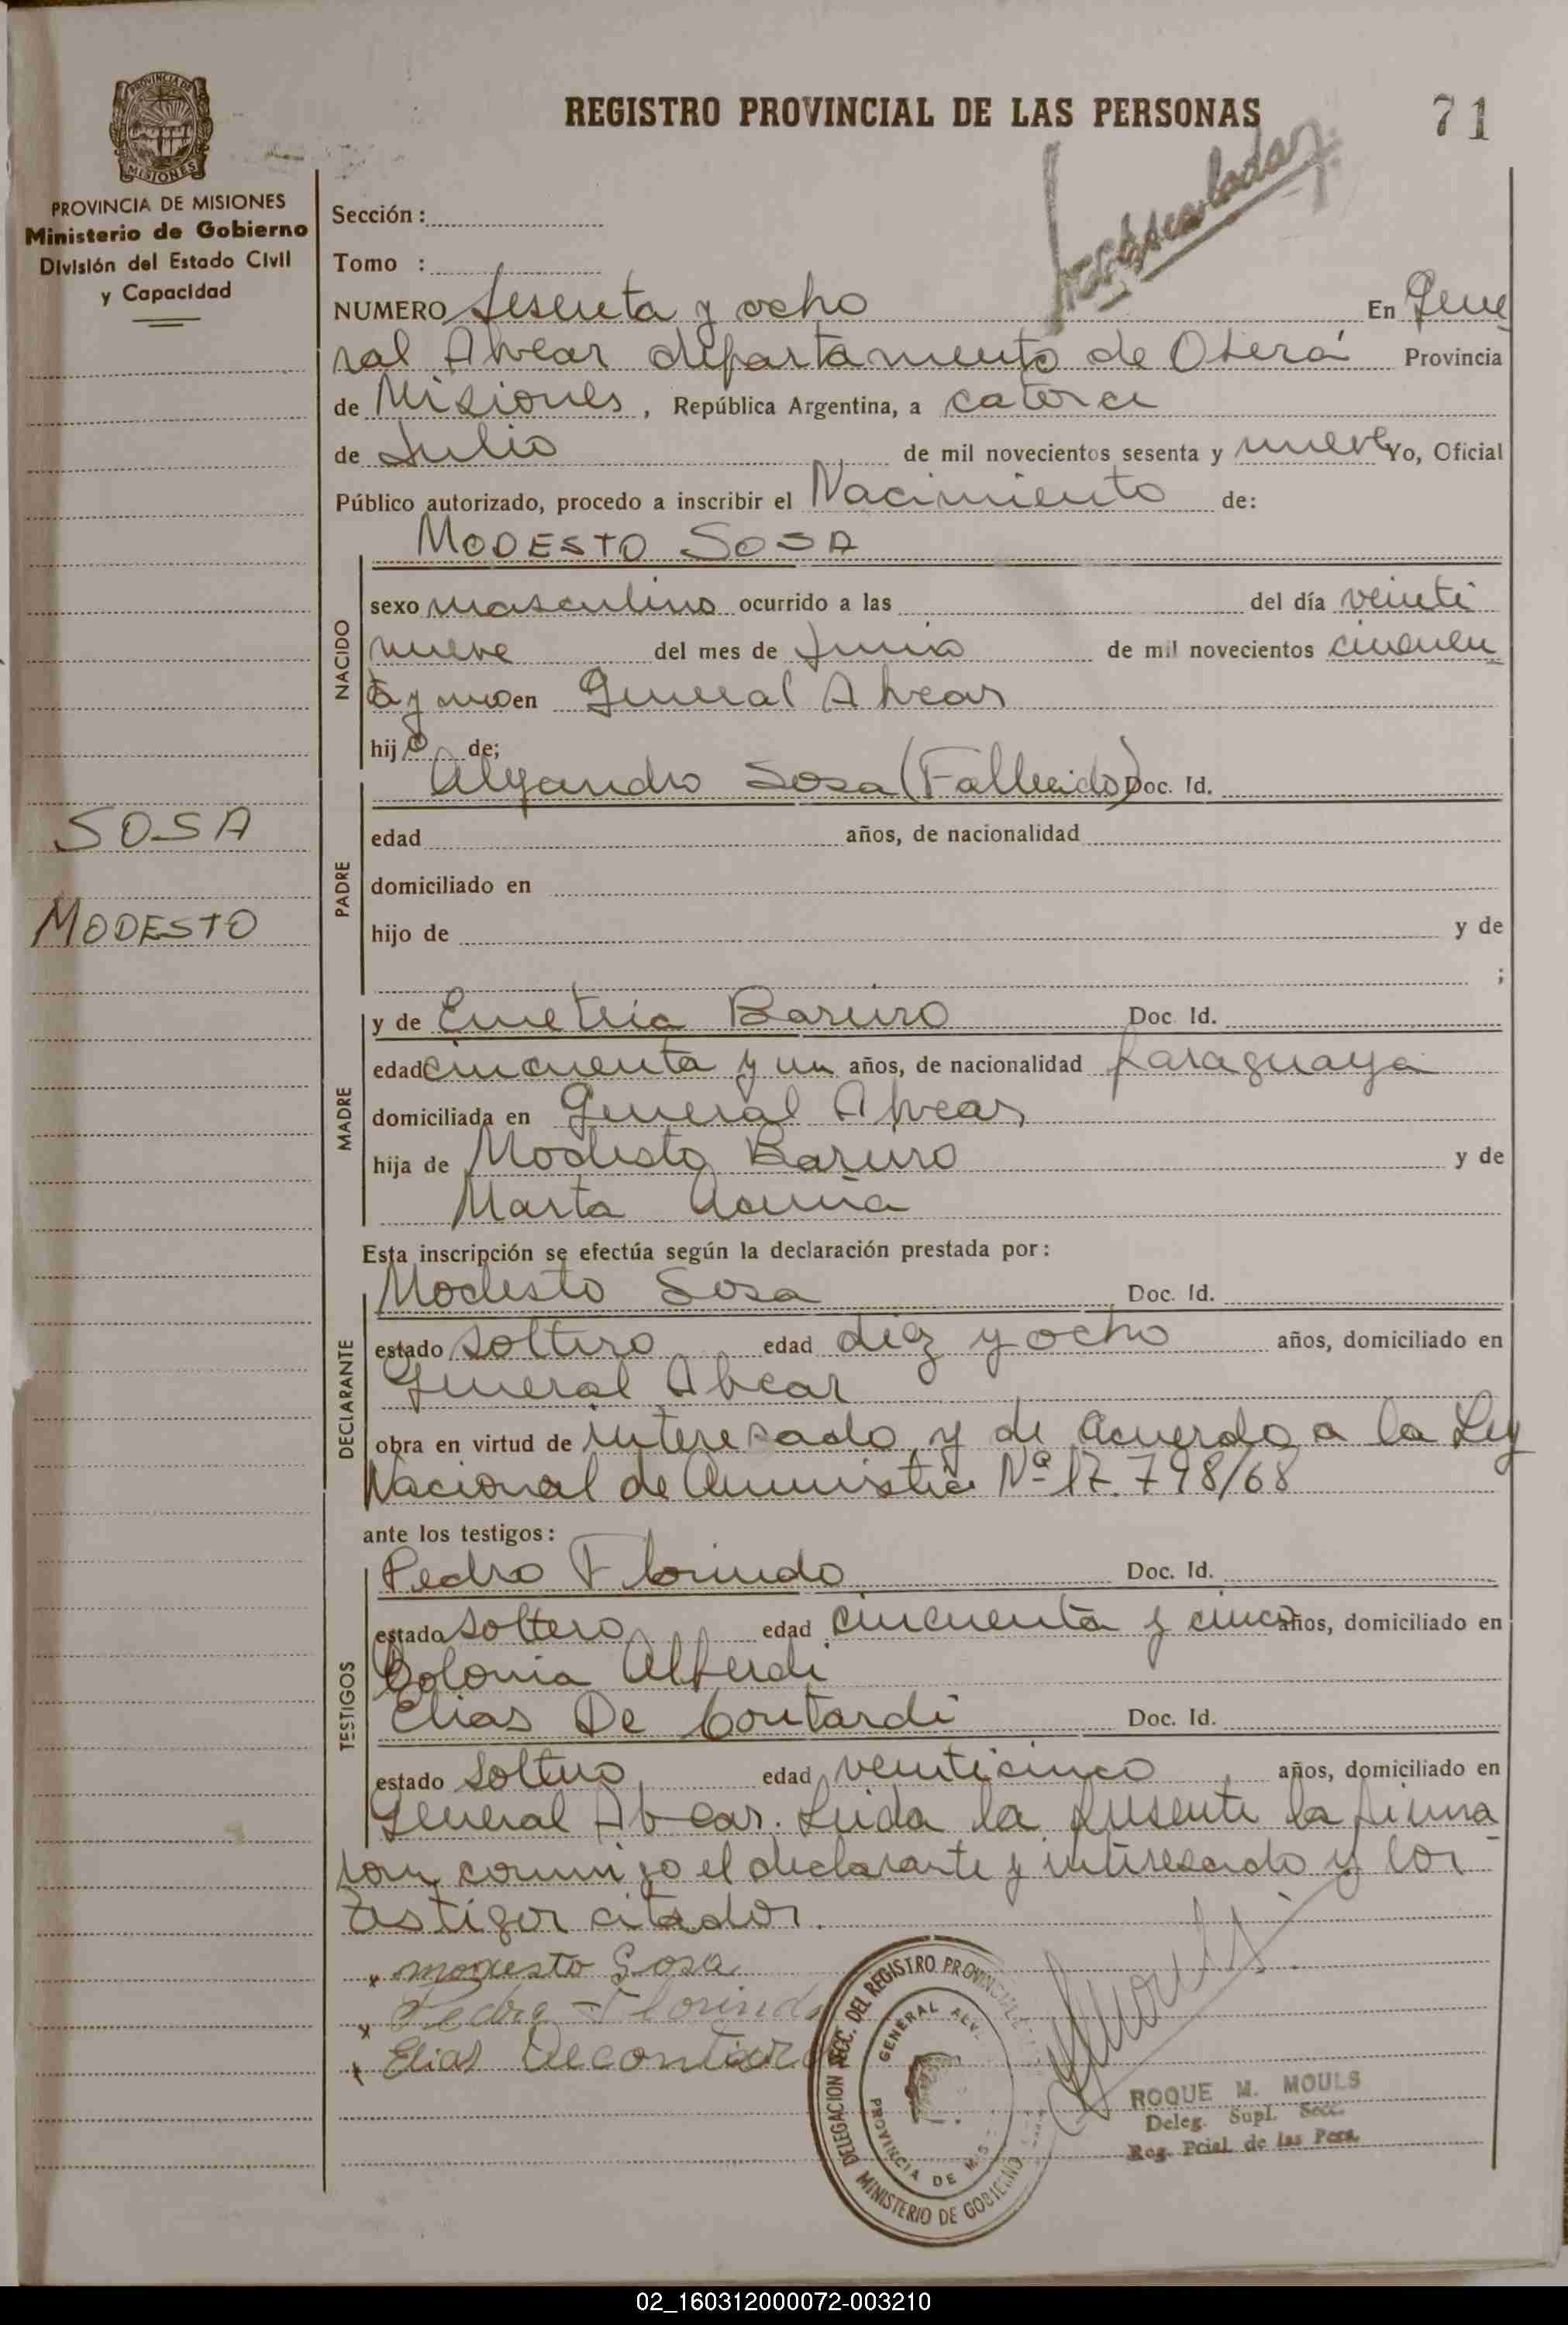 REGISTRO PROVINCIAL DE LAS PERSONAS
71
PROVINCIA DE MISIONES
PROVINCIA DE MISIONES
Ministerio de Gobierno
División del Estado Civil
y Capacidad
Sección :
Tomo :
NUMERO Sesenta y ocho En Gene
ral Alvear departamento de Oberá Provincia
de Misiones, República Argentina, a catorce
de Julio de mil novecientos sesenta y nueve Yo, Oficial
Público autorizado, procedo a inscribir el Nacimiento de:
MODESTO SOSA
NACIDO
sexo masculino ocurrido a las del día veinti
nueve del mes de Junio de mil novecientos cincuen
ta y uno en General Alvear
hijo de;
SOSA
MODESTO
PADRE
Alejandro Sosa (Fallecido) Doc. Id.
edad años, de nacionalidad
domiciliado en
hijo de y de
;
MADRE
y de Emetria Bareiro Doc. Id.
edad cincuenta y un años, de nacionalidad paraguaya
domiciliada en General Alvear
hija de Modesto Bareiro y de
Marta Acuña
Esta inscripción se efectúa según la declaración prestada por:
DECLARANTE
Modesto Sosa Doc. Id.
estado soltero edad diez y ocho años, domiciliado en
General Alvear
obra en virtud de interesado y de acuerdo a la Ley
Nacional de Amnistia Nº 17.798/68
ante los testigos:
TESTIGOS
Pedro Florindo Doc. Id.
estado soltero edad cincuenta y cinco años, domiciliado en
Colonia Alberdi
Elias De Contardi Doc. Id.
estado soltero edad veinticinco años, domiciliado en
General Alvear. Leida la presente la firma
ron conmigo el declarante y interesado y los
testigos citados.
x modesto Sosa
x Pedro Florindo
x Elias Decontardi
DELEGACION SECC. DEL REGISTRO PROVINCIAL
GENERAL ALV
PROVINCIA DE MIS
MINISTERIO DE GOBIERNO
ROQUE M. MOULS
Deleg. Supl. Secc.
Reg. Pcial de las Pers.
02_160312000072-003210